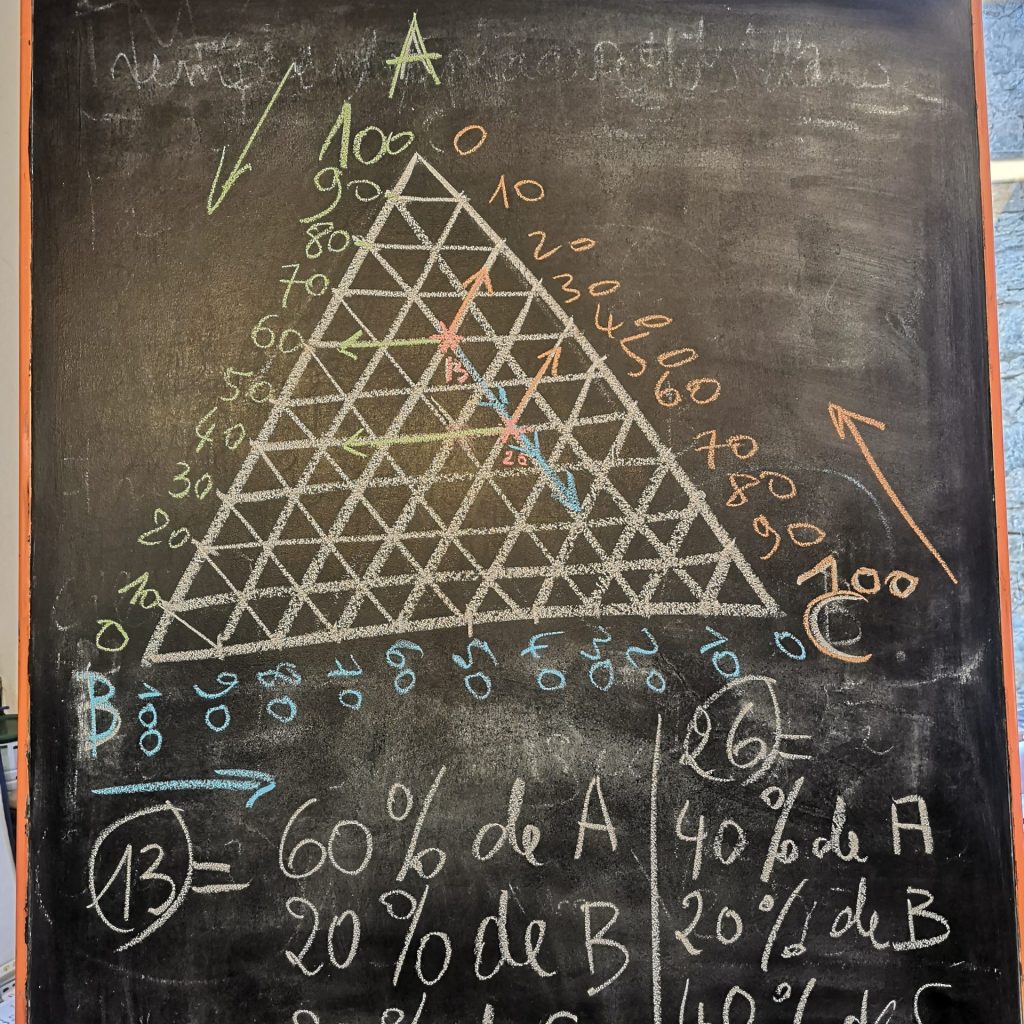 A
100 0
90 10
80 20
70 30
60 40
50 50
40 60
30 70
20 80
10 90
0 100
C
B 100 90 80 70 60 50 40 30 20 10 0
13
26
13 = 60% de A
20% de B
26 =
40% de A
20% de B
40% de C